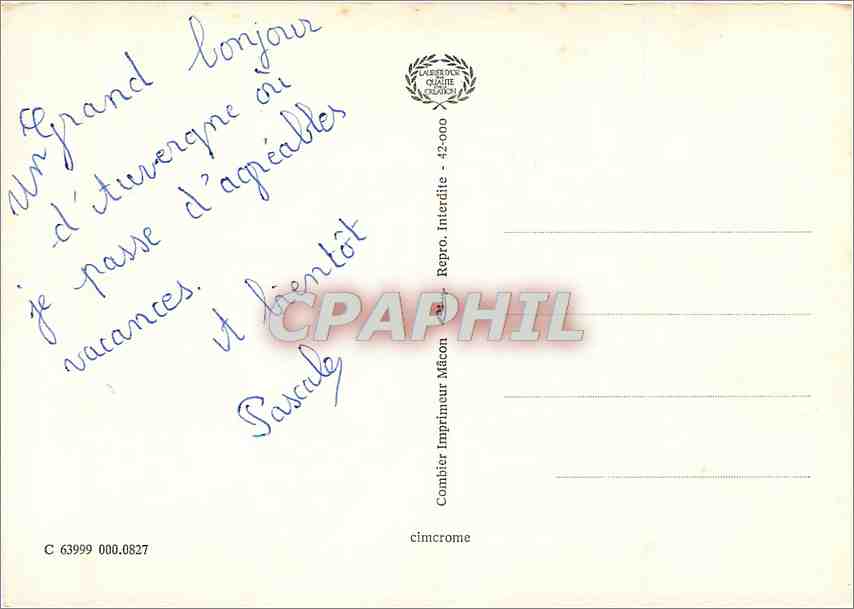 Un Grand bonjour
d'Auvergne où
je passe d'agréables
vacances.
A bientôt
Pascale
LAURIER D'OR
QUALITÉ
CRÉATION
Combier Imprimeur Mâcon - Repro. Interdite - 42-000
CPAPHIL
cimcrome
C 63999 000.0827